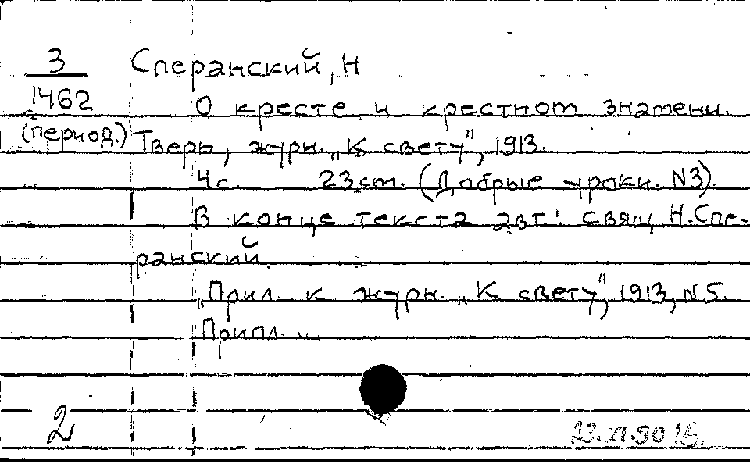 3 Сперанский, Н
1462 О кресте и крестном знамени.
(период.) Тверь, журн. „К свету", 1913.
4с. 23см. (Добрые уроки. N3).
В конце текста авт: свящ. Н.Спе-
ранский.
„Прил. к журн. „К свету", 1913, N5.
Припл. ...
2